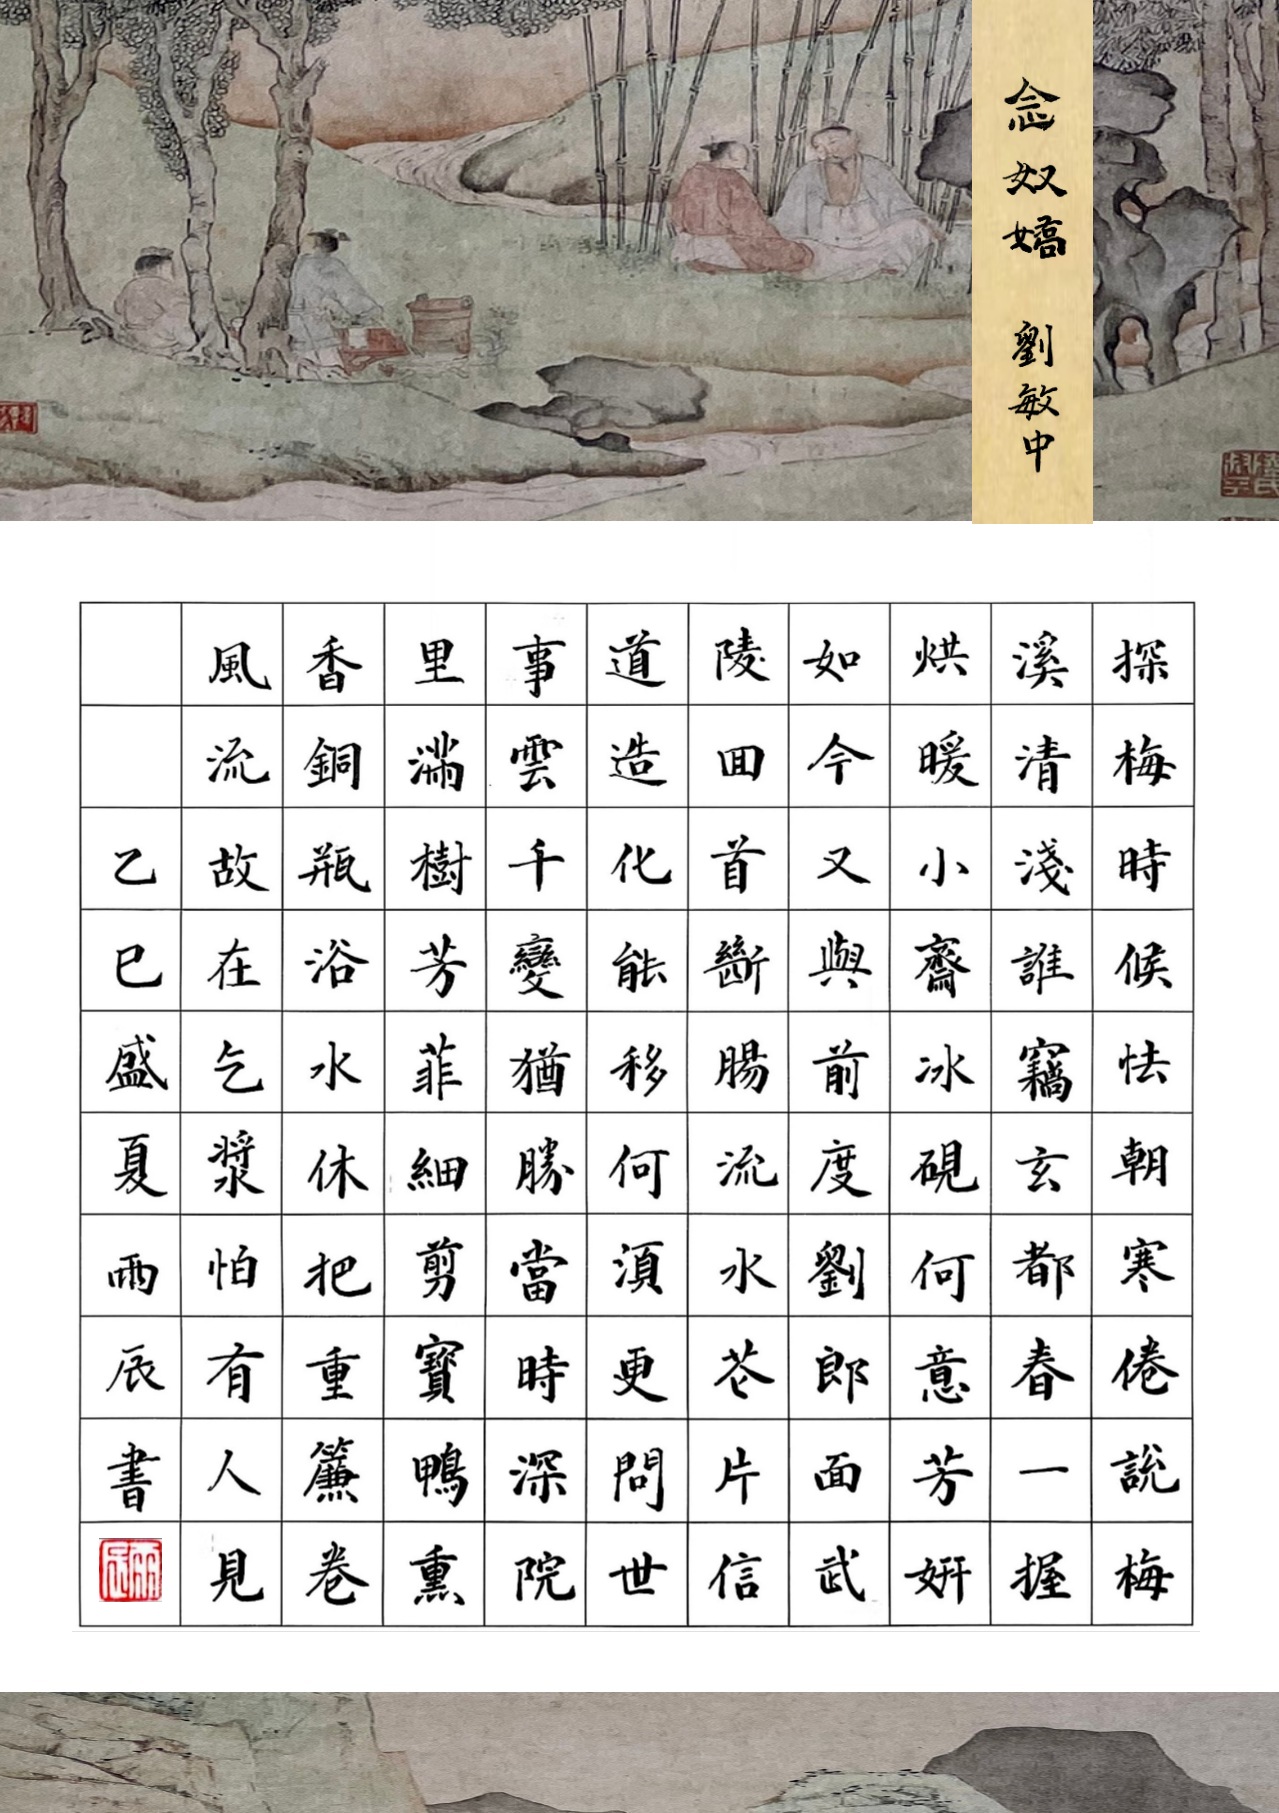 念奴嬌 劉敏中
探梅時候怯朝寒倦說梅
溪清淺誰竊玄都春一握
烘暖小齋冰硯何意芳妍
如今又與前度劉郎面武
陵回首斷腸流水花片信
道造化能移何須更問世
事雲千變猶勝當時深院
里滿樹芳菲細剪寶鴨熏
香銅瓶浴水休把重簾卷
風流故在乞漿怕有人見
乙巳盛夏雨辰書
雨辰